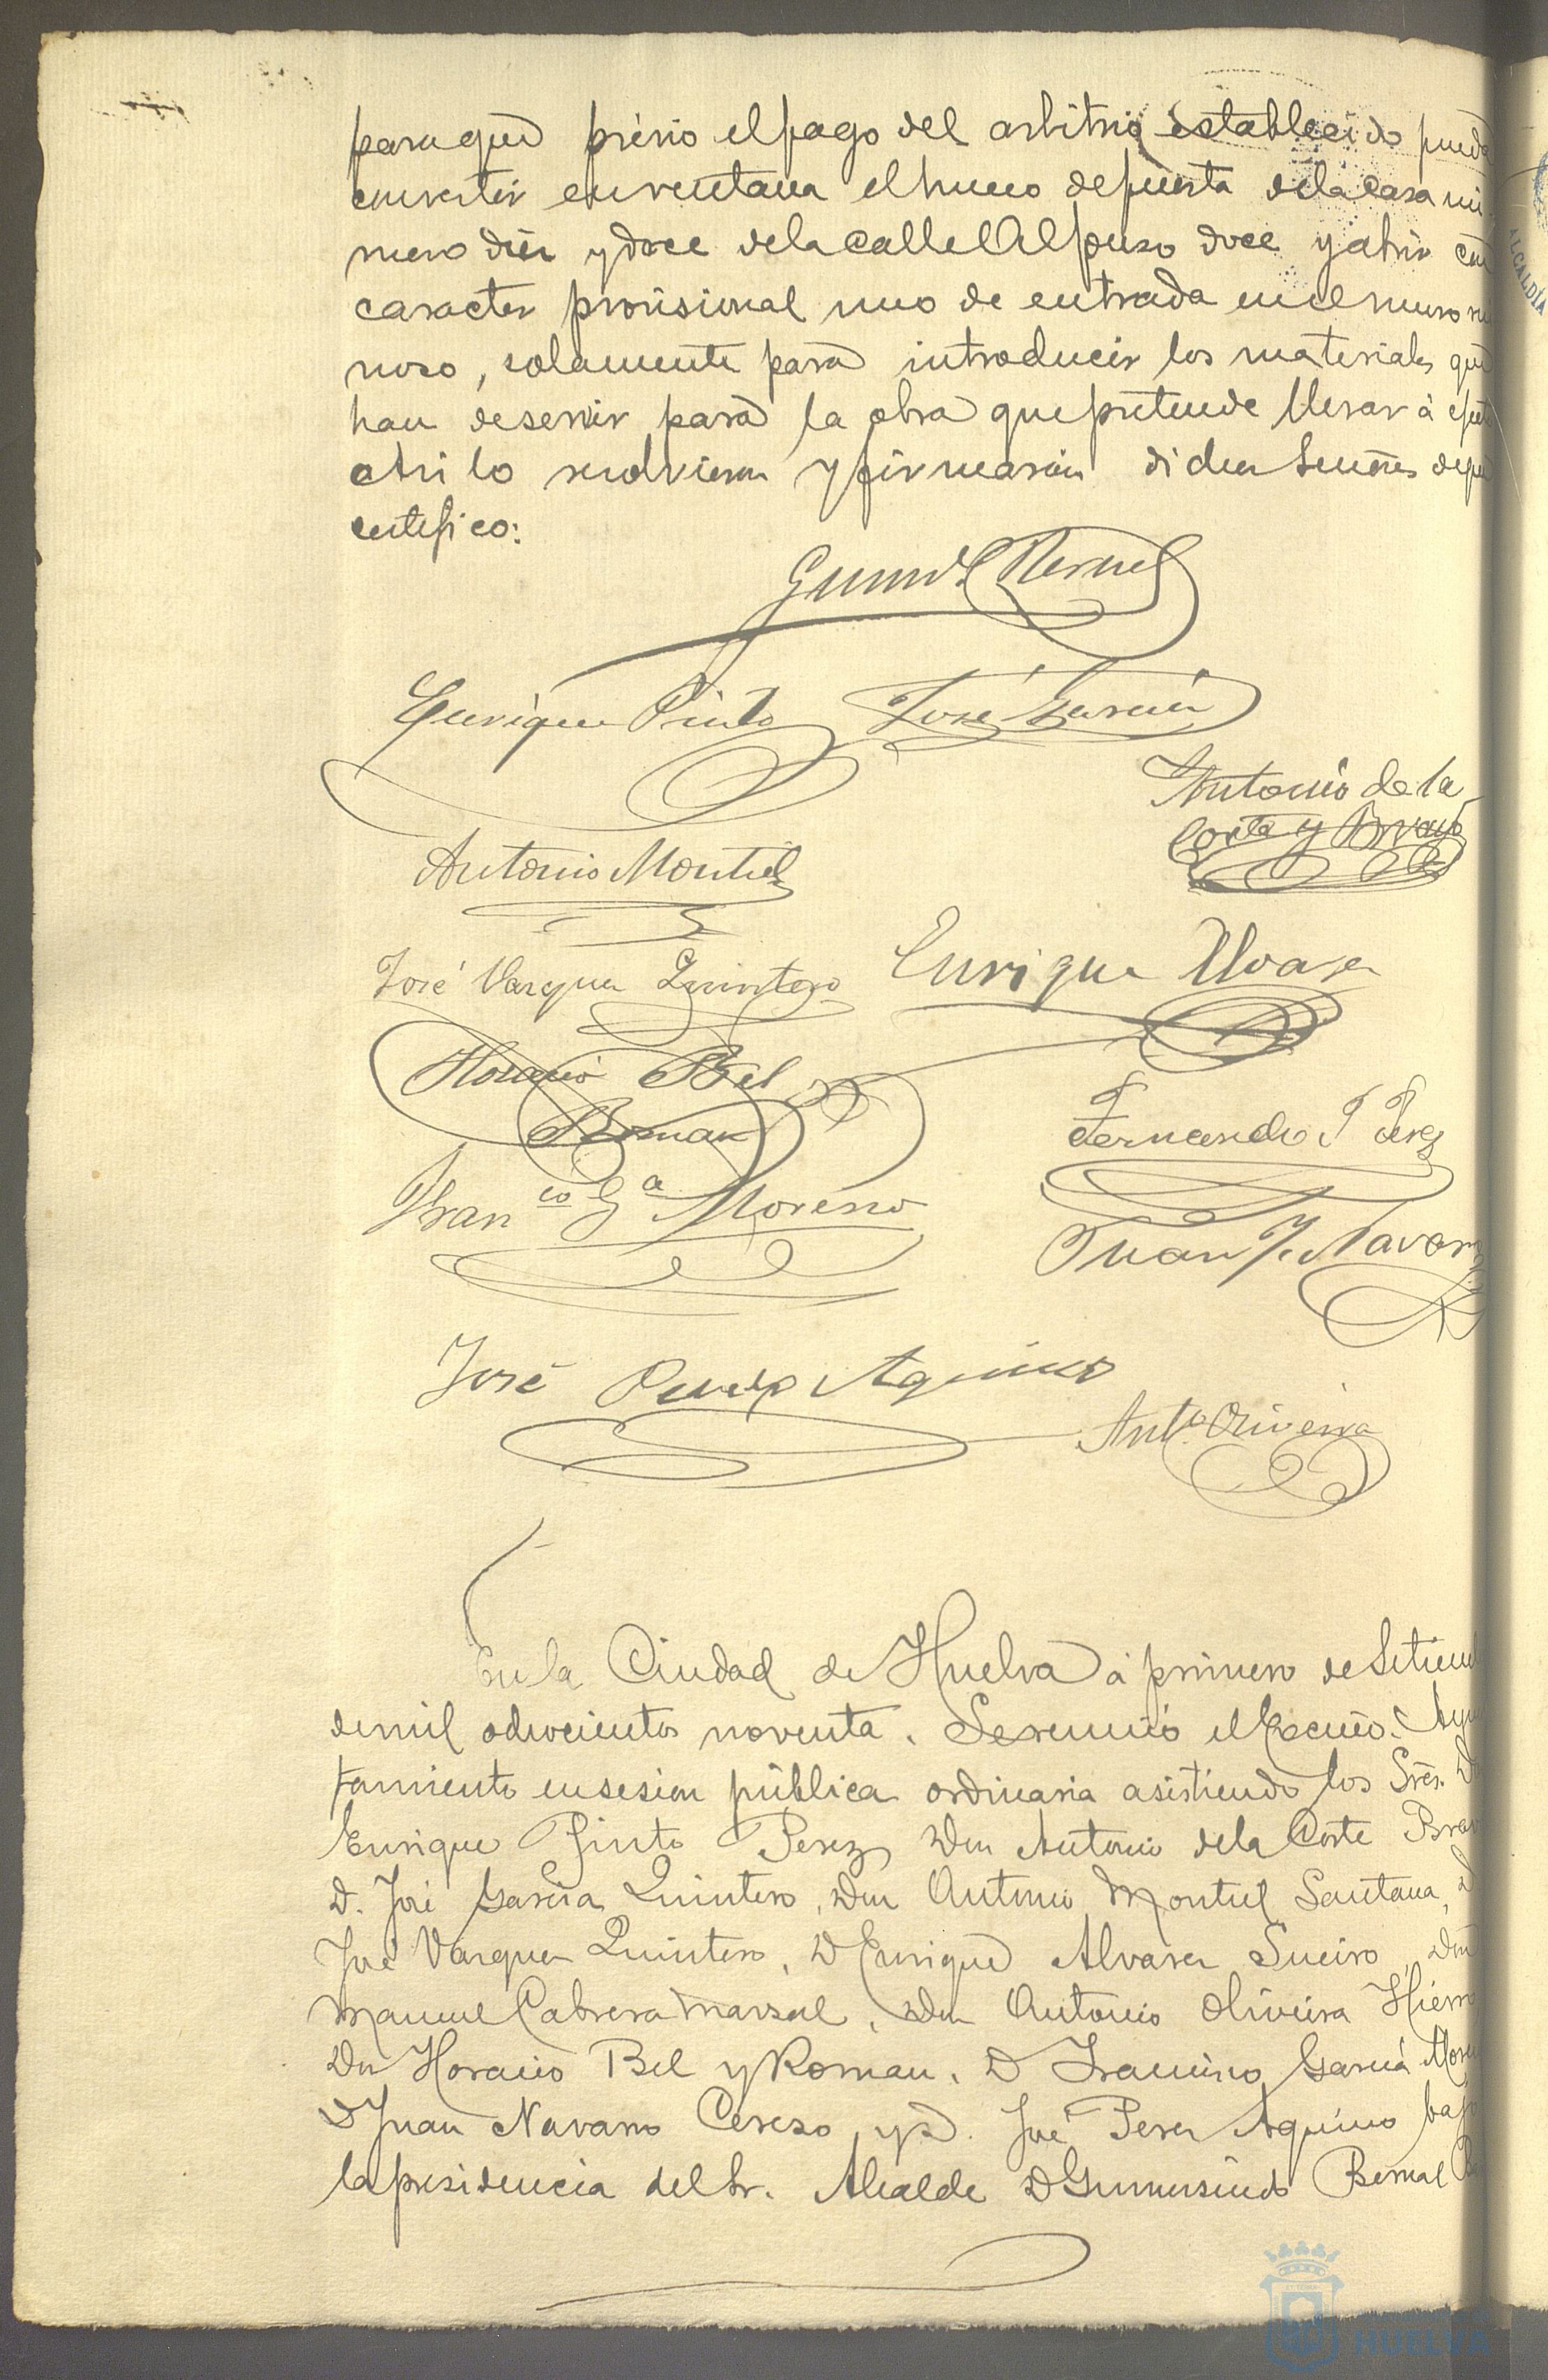 para que previo el pago del arbitrio establecido pueda
convertir en ventana el hueco de puerta de la casa nú
mero diez y doce de la calle Alfonso doce y abrir con
caracter provisional uno de entrada en el muro rui
noso, solamente para introducir los materiales que
han de servir para la obra que pretende llevar á efecto
Asi lo resolvieron y firmarán dichos Señores de que
certifico:
Gumdo Bernal
Enrique Pinto José García
Antonio de la
Corte y Bravo
Antonio Montiel
José Vazquez Quintero Enrique Alvarez
Horacio Bel
Roman
Fernando P. Perez
Franco Ga Moreno
Juan J. Navarro
José Perez Aquino
Anto Oliveira
En la Ciudad de Huelva á primero de Setiem
de mil ochocientos noventa. Se reunió el Excmo. Ayun
tamiento en sesion pública ordinaria asistiendo los Sres. D
Enrique Pinto Perez Don Antonio de la Corte Brav
D. José García Quintero, Don Antonio Montiel Santana, D
José Vazquez Quintero, D Enrique Alvarez Sueiro, Don
Manuel Cabrera Marzal, Don Antonio Oliveira Hierro
Don Horacio Bel y Roman, D Francisco García More
D Juan Navarro Cerezo, y D. José Perez Aquino bajo
la presidencia del Sr. Alcalde D Gumersindo Bernal
ALCALDÍA
HUELVA